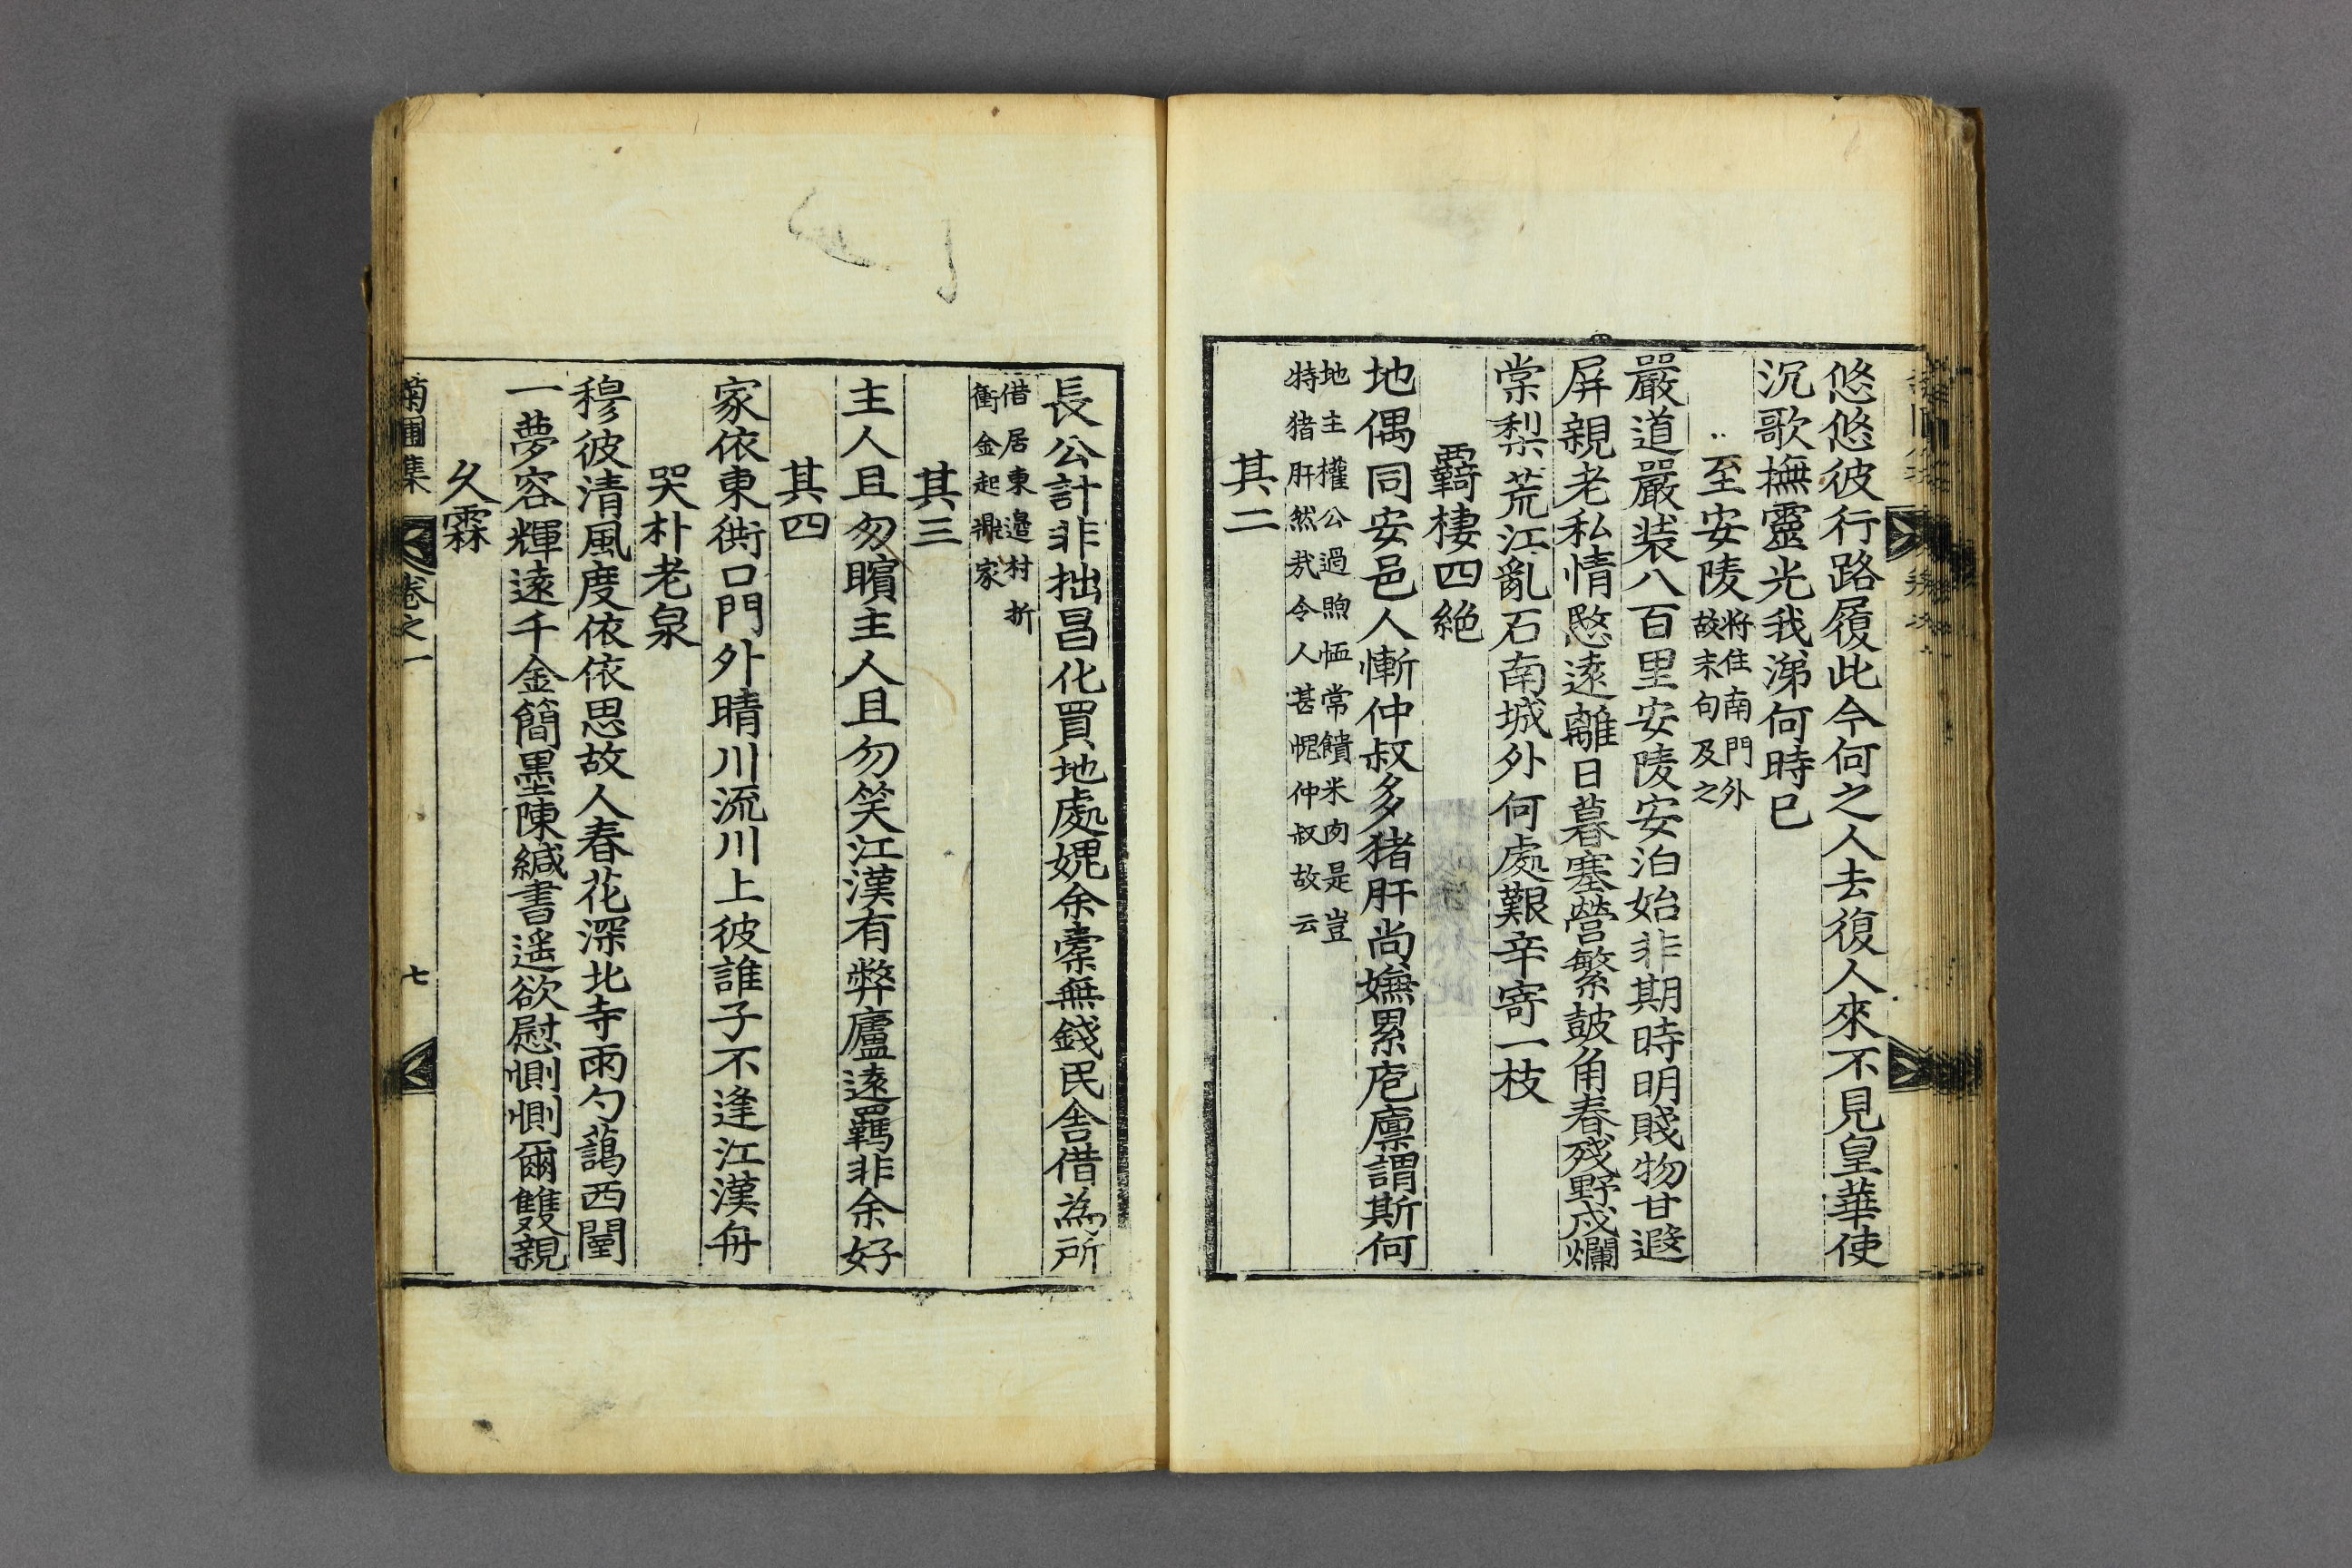 悠悠彼行路履此今何之人去復人來不見皇華使
沉歌撫靈光我涕何時已
至安陵將住南門外
故末句及之
嚴道嚴装八百里安陵安泊始非期時明賤物甘遐
屏親老私情愍遠離日暮塞營繁皷角春殘野戍爛
棠梨荒江亂石南城外何處艱辛寄一枝
羇棲四絶
地偶同安邑人慚仲叔多猪肝尚嫵累庖廪謂斯何
地主權公過煦恤常饋米肉是豈
特猪肝然㦲令人甚怩仲叔故云
其二
長公計非拙昌化買地處媿余橐無錢民舍借為所
借居東邉村折
衝金起㴑家
其三
主人且勿矉主人且勿笑江漢有弊廬遠羈非余好
其四
家依東衖口門外晴川流川上彼誰子不逢江漢舟
哭朴老泉
穆彼清風度依依思故人春花深北寺雨勺藹西闉
一夢容輝遠千金簡墨陳緘書遥欲慰惻惻爾雙親
久霖
菊圃集
卷之一
七